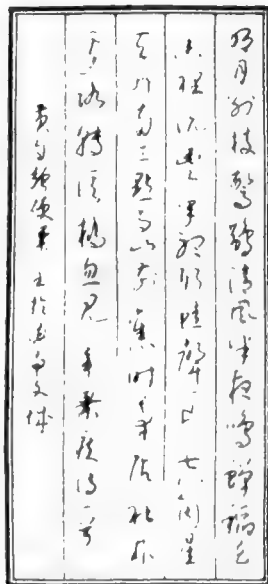 明月別枝驚鵲清風半夜鳴蟬稻花
香裡説豐年聽取蛙聲一片七八個星
天外兩三點雨山前舊時茅店社林
邊路轉溪橋忽見辛棄疾詞一首